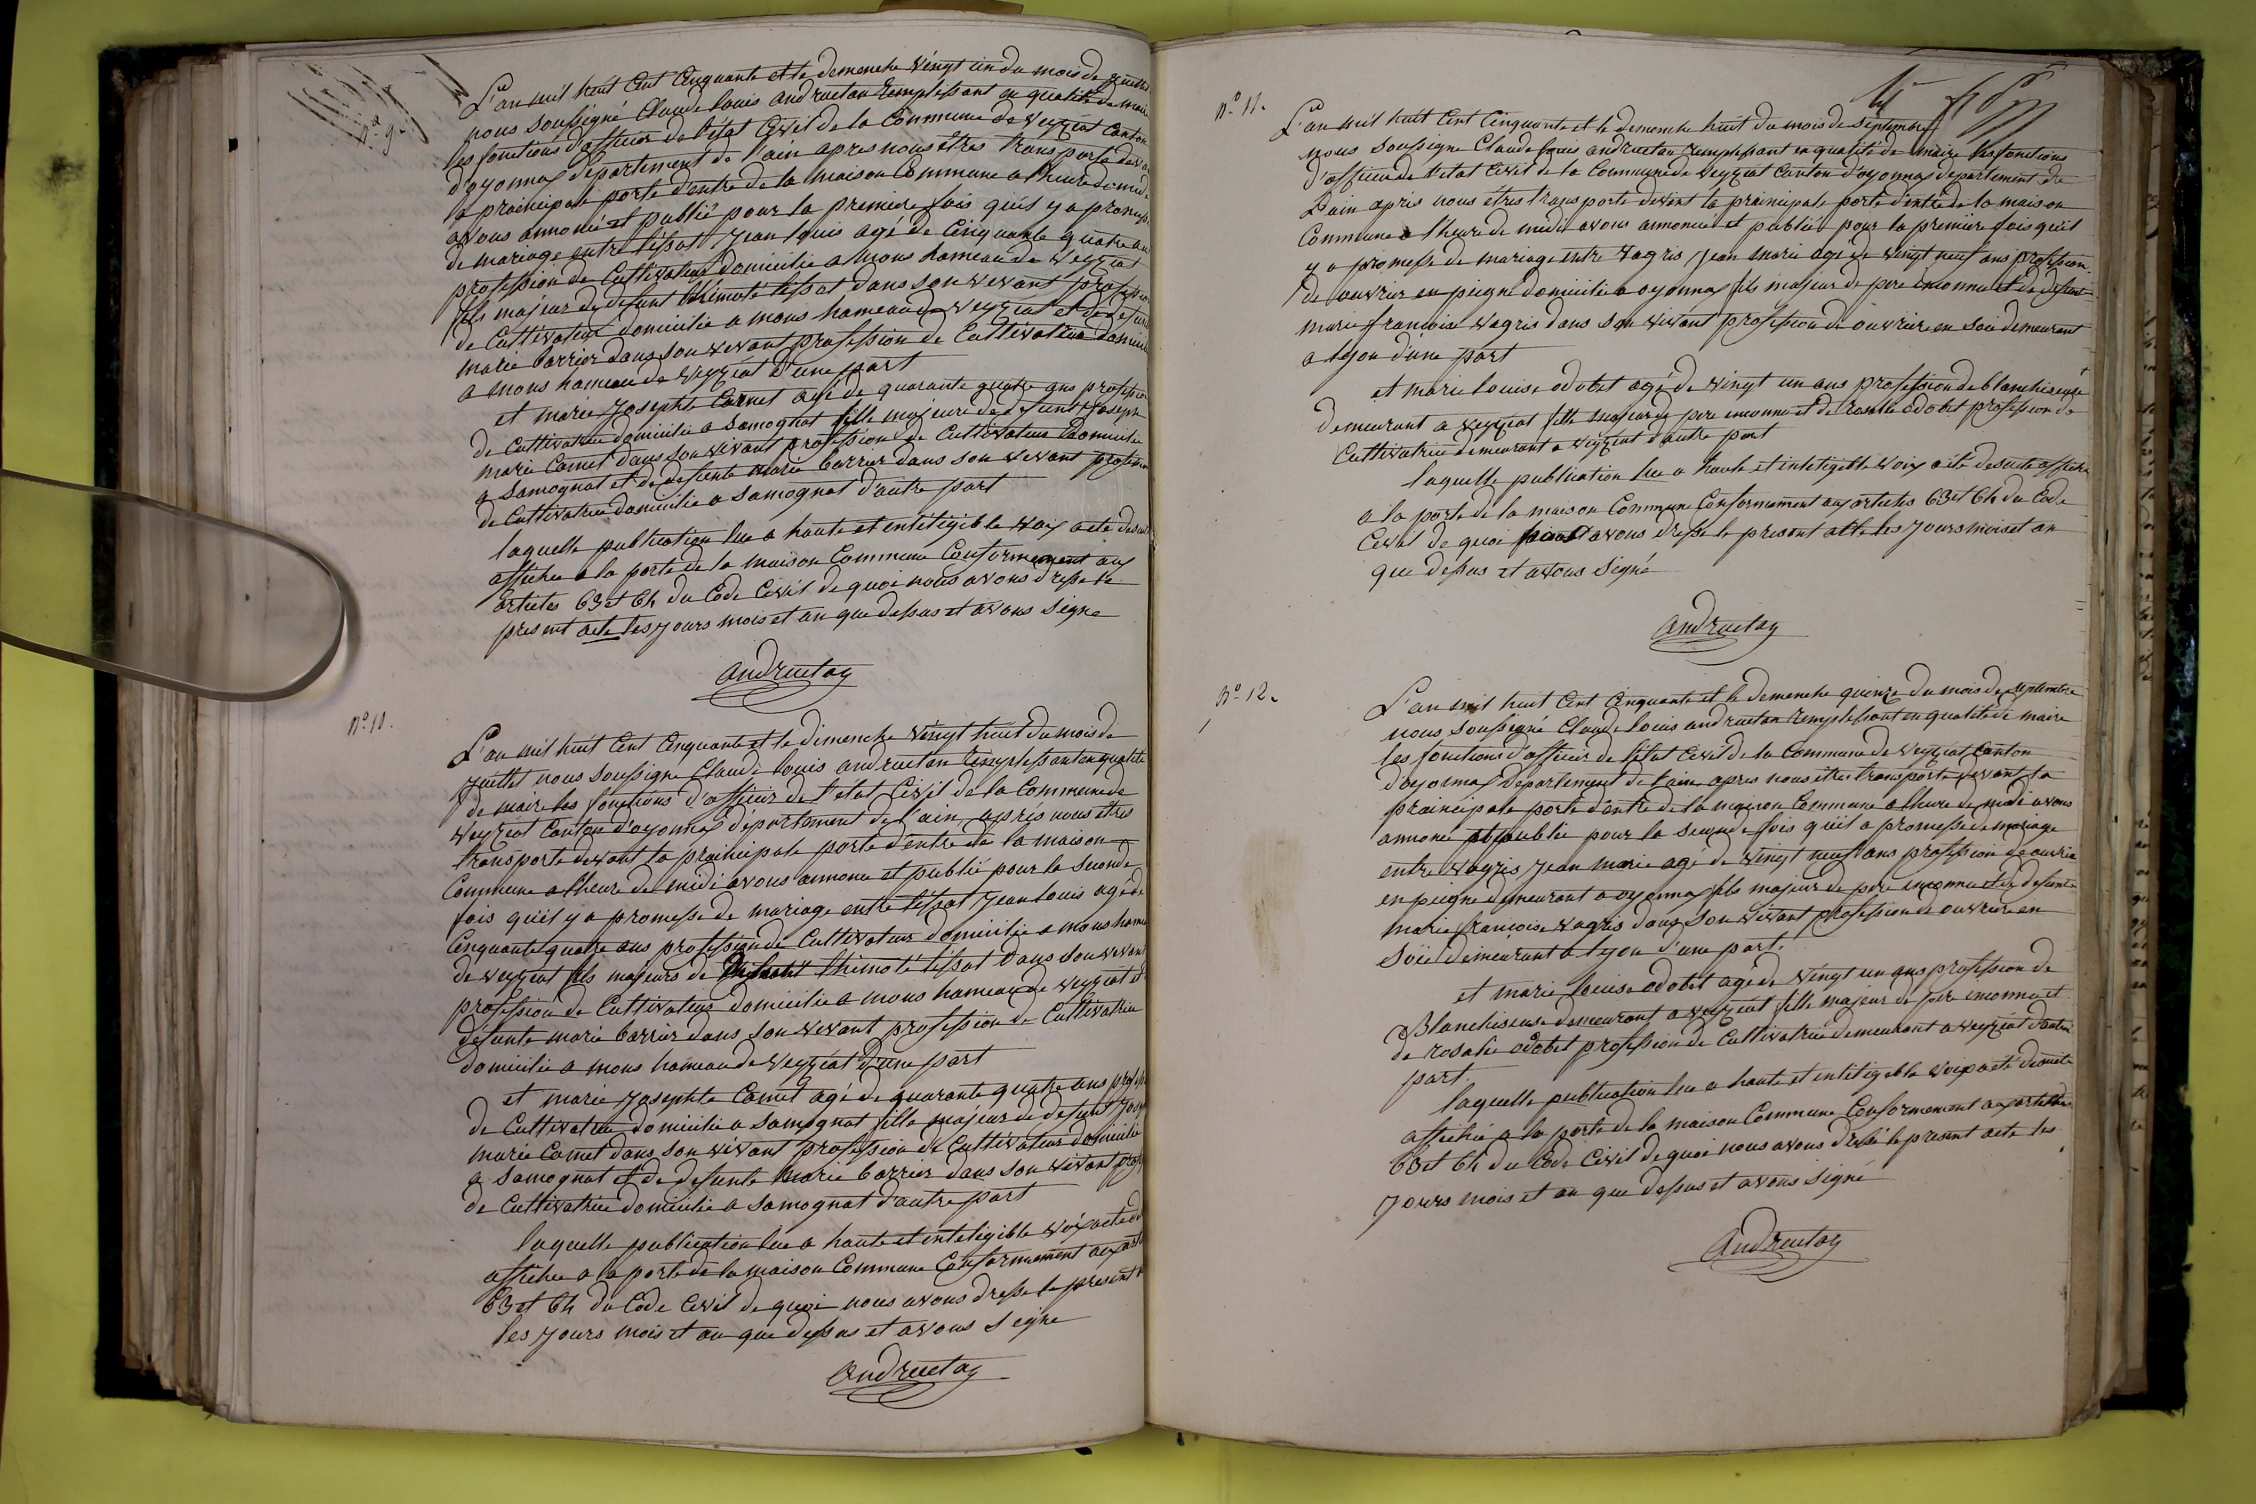 N.o 9.
L'an mil huit Cent Cinquante et le demenche vingt un du mois de Juillet
nous soussigné Claude louis andruetan remplessant en qualité de maire
les fonctions d'officier de l'état Civil de la Commune de veyziat Canton
d'oyonnax departement de l'ain apres nous êtres transporté devant
la prainicipale porte d'entre de la maison Commune a lheure de midi
avons annoncé et publié pour la premiere fois quis y a promesse
de mariage entre tissot Jean louis agé de Cinquante quatre ans
profession de Cultivateur domicilie a mons hameau de veyziat
fils majeur de defunt thimoté tissot dans son vevant profession
de Cultivateur domicilie a mons hameau de veyziat et de defunte
marie barrier dans son vevant profession de Cultivatrice domicilie
a mons hameau de veyziat d'une part
et marie Josephte Comet agé de quarante quatre ans profession
de Cultivatrice domicilie a samognat fille majeure de defunt Joseph
marie Comet dans son vivant profession de Cultivateur domicilie
a samognat et de defunte marie barrier dans son vevant profession
de Cultivatrice domicilie a samognat d'autre part
laquelle publication lue a haute et intetigible voix a eté desuite
affichee a la porte de la maison Commune Conformement aux
articles 63 et 64 du Code Civil de quoi nous avons dresse le
present acte les jours mois et an que dessus et avons signe
andruetan
N.o 10.
L'an mil huit Cent Cinquante et le dimenche vingt huit du mois de
juillet nous soussigne Claude louis andruetan remplessant en qualité
de maire les fonctions d'officier de l'état Civil de la Commune de
veyziat Canton d'oyonnax département de l'ain aprés nous êtres
transporte devant la prainicipale porte d'entre de la maison
Commune a lheure de midi avons annonce et publié pour la seconde
fois quil y a promesse de mariage entre tissot Jean louis agé de
Cinquante quatre ans profession de Cultivateur domicilie a mons hameau
de veyziat fils majeurs de thimoté tissot dans son vevant
profession de Cultivateur domicilie a mons hameau de veyziat et
defunte marie barrier dans son vevant profession de Cultivatrice
domicilie a mons hameau de veyziat d'une part
et marie Josephte Comet agé de quarante quatre ans profession
de Cultivatrice domicilie a samognat fille majeur de defunt Joseph
marie Comet dans son vivant profession de Cultivateur domicilie
a samognat et de defunte marie barrier dans son vivant profession
de Cultivatrice domicilie a samognat d'autre part
laquelle publication lue a haute et intetigible voix a eté
affichee a la porte de la maison Commune Conformement aux
63 et 64 du Code Civil de quoi nous avons dresse le present
les jours mois et an que dessus et avons signe
andruetan
N.o 11.
L'an mil huit Cent Cinquante et le demenche huit du mois de septembre
nous soussigne Claude louis andruetan remplessant en qualité de maire les fonctions
d'officier de l'etat Civil de la Commune de veyziat Canton d'oyonnax departement de
l'ain apres nous êtres transporte devent la prainicipale porte d'entre de la maison
Commune a lheure de midi avons annoncé et publié pour la première fois quil
y a promesse de mariage entre vagris Jean marie agé de vingt neuf ans profession
de ouvrier en peigne domicilie a oyonnax fils majeur de pere inconnu et de defunte
marie francoise vagris dans son vivant profession de ouvriere en soie demeurant
a lyon d'une part
et marie louise odobet agé de vingt un ans profession de blanchiseuse
demeurant a veyziat fille majeur de pere inconnu et de rosalie odobet profession de
Cultivatrice demeurant a veyziat d'autre part
laquelle publication lue a haute et intetigible voix a ete desuite affichee
a la porte de la maison Commune Conformement aux articles 63 et 64 du Code
Civil de quoi avons dresse le present acte les jours mois et an
que dessus et avons signé
andruetan
N.o 12.
L'an mil huit Cent Cinquante et le demenche quinze du mois de septembre
nous soussigné Claude louis andruetan remplessant en qualité de maire
les fonctions d'officier de l'état Civil de la Commune de veyziat Canton
d'oyonnax departement de l'ain apres nous êtres transporté devant la
prainicipale porte d'entre de la maison Commune a lheure de midi avons
annonce et publie pour la seconde fois quil a promesse de mariage
entre vagris Jean marie agé de vingt neuf ans profession de ouvrier
en peigne demeurant a oyonnax fils majeur de pere inconnu et de defunte
marie francoise vagris dans son vivant profession de ouvriere en
soie demeurant a lyon d'une part.
et marie louise odobet agé de vingt un ans profession de
Blanchiseuse demeurant a veyziat fille majeur de pere inconnu et
de rosalie odobet profession de Cultivatrice demeurant a veyziat d'autre
part.
laquelle publication lue a haute et intetigible voix a eté desuite
affiché a la porte de la maison Commune Conformement aux articles
63 et 64 du Code Civil de quoi nous avons dressé le present acte les
jours mois et an que dessus et avons signé
andruetan